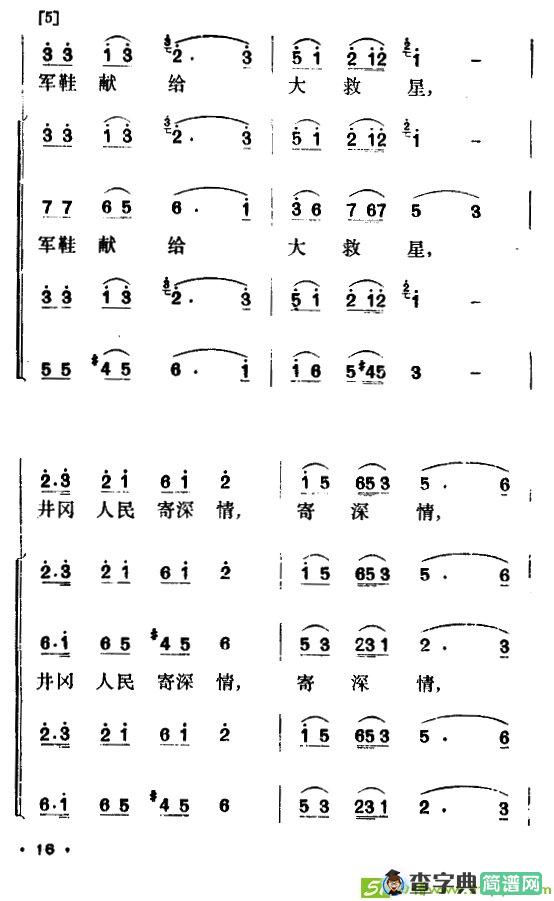 [5]
3 3 1 3 3 2 . 3 5 1 2 1 2 2 1 –
军鞋 献 给 大 救 星,
3 3 1 3 3 2 . 3 5 1 2 1 2 2 1 –
7 7 6 5 6 . 1 3 6 7 6 7 5 3
军鞋 献 给 大 救 星,
3 3 1 3 3 2 . 3 5 1 2 1 2 2 1 –
5 5 #4 5 6 . 1 1 6 5 #4 5 3 –
2 . 3 2 1 6 1 2 1 5 6 5 3 5 . 6
井冈 人民 寄深 情, 寄 深 情,
2 . 3 2 1 6 1 2 1 5 6 5 3 5 . 6
6 . 1 6 5 #4 5 6 5 3 2 3 1 2 . 3
井冈 人民 寄深 情, 寄 深 情,
2 . 3 2 1 6 1 2 1 5 6 5 3 5 . 6
6 . 1 6 5 #4 5 6 5 3 2 3 1 2 . 3
· 16 ·
查字典简谱网